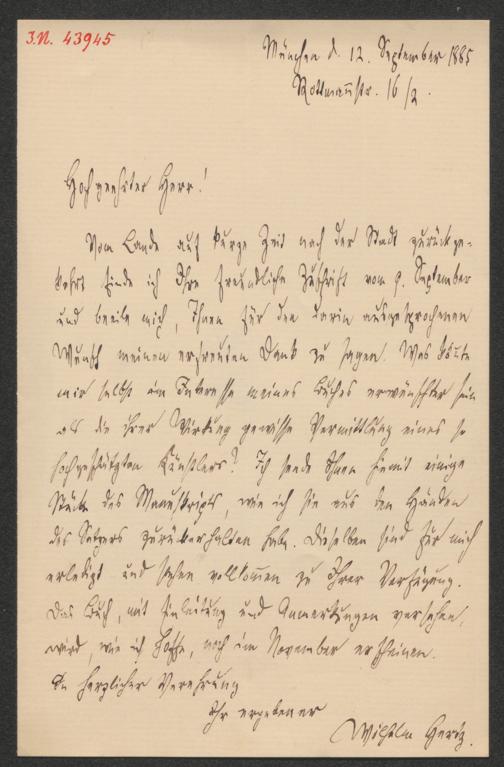 J.N. 43945
München d. 12. September 1885
Rottmannstr. 16/2.
Hochgeehrter Herr!
Vom Lande auf kurze Zeit nach der Stadt zurückge-
kehrt finde ich Ihre freundliche Zuschrift vom 9. September
und beeile mich, Ihnen für den darin ausgesprochenen
Wunsch meinen erfreuten Dank zu sagen. Was könnte
mir selbst im Interesse meines Buches erwünschter sein
als die ihrer Wirkung gewisse Vermittlung eines so
hochgeschätzten Künstlers? Ich sende Ihnen hiemit einige
Stücke des Manuskripts, wie ich sie aus den Händen
des Setzers zurückerhalten habe. Dieselben sind für mich
erledigt und stehen vollkommen zu Ihrer Verfügung.
Das Buch, mit Einleitung und Anmerkungen versehen,
wird, wie ich hoffe, noch im November erscheinen.
In herzlicher Verehrung
Ihr ergebener
Wilhelm Hertz.